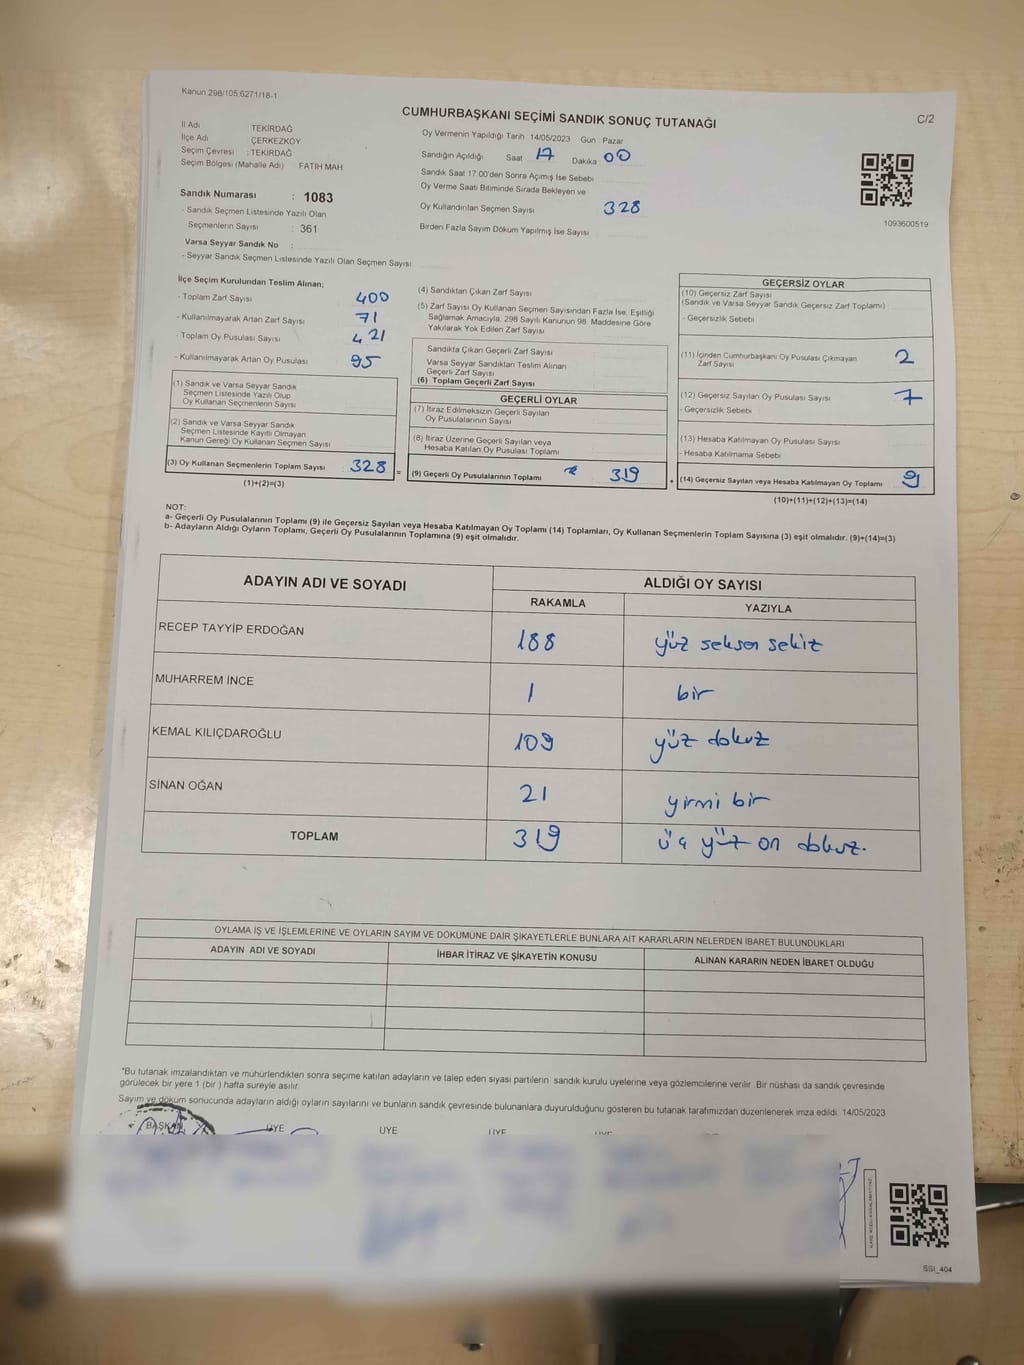 Kanun 298/105,6271/18-1
CUMHURBAŞKANI SEÇİMİ SANDIK SONUÇ TUTANAĞI
C/2
İl Adı TEKİRDAĞ
İlçe Adı ÇERKEZKÖY
Seçim Çevresi : TEKİRDAĞ
Seçim Bölgesi (Mahalle Adı) FATİH MAH
Sandık Numarası : 1083
- Sandık Seçmen Listesinde Yazılı Olan
Seçmenlerin Sayısı : 361
Varsa Seyyar Sandık No :
- Seyyar Sandık Seçmen Listesinde Yazılı Olan Seçmen Sayısı
Oy Vermenin Yapıldığı Tarih 14/05/2023 Gün Pazar
Sandığın Açıldığı Saat 17 Dakika 00
Sandık Saat 17:00'den Sonra Açılmış İse Sebebi
Oy Verme Saati Bitiminde Sırada Bekleyen ve
Oy Kullandırılan Seçmen Sayısı 328
Birden Fazla Sayım Döküm Yapılmış İse Sayısı
1093600519
İlçe Seçim Kurulundan Teslim Alınan;
- Toplam Zarf Sayısı 400
- Kullanılmayarak Artan Zarf Sayısı 71
- Toplam Oy Pusulası Sayısı 421
- Kullanılmayarak Artan Oy Pusulası 95
(1) Sandık ve Varsa Seyyar Sandık
Seçmen Listesinde Yazılı Olup
Oy Kullanan Seçmenlerin Sayısı
(2) Sandık ve Varsa Seyyar Sandık
Seçmen Listesinde Kayıtlı Olmayan
Kanun Gereği Oy Kullanan Seçmen Sayısı
(3) Oy Kullanan Seçmenlerin Toplam Sayısı 328 =
(1)+(2)=(3)
(4) Sandıktan Çıkan Zarf Sayısı
(5) Zarf Sayısı Oy Kullanan Seçmen Sayısından Fazla İse, Eşitliği
Sağlamak Amacıyla, 298 Sayılı Kanunun 98. Maddesine Göre
Yakılarak Yok Edilen Zarf Sayısı
Sandıkta Çıkan Geçerli Zarf Sayısı
Varsa Seyyar Sandıktan Teslim Alınan
Geçerli Zarf Sayısı
(6) Toplam Geçerli Zarf Sayısı
GEÇERLİ OYLAR
(7) İtiraz Edilmeksizin Geçerli Sayılan
Oy Pusulalarının Sayısı
(8) İtiraz Üzerine Geçerli Sayılan veya
Hesaba Katılan Oy Pusulası Toplamı
(9) Geçerli Oy Pusulalarının Toplamı 319 +
GEÇERSİZ OYLAR
(10) Geçersiz Zarf Sayısı
(Sandık ve Varsa Seyyar Sandık Geçersiz Zarf Toplamı)
- Geçersizlik Sebebi
(11) İçinden Cumhurbaşkanı Oy Pusulası Çıkmayan
Zarf Sayısı 2
(12) Geçersiz Sayılan Oy Pusulası Sayısı 7
- Geçersizlik Sebebi
(13) Hesaba Katılmayan Oy Pusulası Sayısı
- Hesaba Katılmama Sebebi
(14) Geçersiz Sayılan veya Hesaba Katılmayan Oy Toplamı 9
(10)+(11)+(12)+(13)=(14)
NOT:
a- Geçerli Oy Pusulalarının Toplamı (9) ile Geçersiz Sayılan veya Hesaba Katılmayan Oy Toplamı (14) Toplamları, Oy Kullanan Seçmenlerin Toplam Sayısına (3) eşit olmalıdır. (9)+(14)=(3)
b- Adayların Aldığı Oyların Toplamı, Geçerli Oy Pusulalarının Toplamına (9) eşit olmalıdır.
ADAYIN ADI VE SOYADI ALDIĞI OY SAYISI
RAKAMLA YAZIYLA
RECEP TAYYİP ERDOĞAN 188 yüz seksen sekiz
MUHARREM İNCE 1 bir
KEMAL KILIÇDAROĞLU 109 yüz dokuz
SİNAN OĞAN 21 yirmi bir
TOPLAM 319 üç yüz on dokuz.
OYLAMA İŞ VE İŞLEMLERİNE VE OYLARIN SAYIM VE DÖKÜMÜNE DAİR ŞİKAYETLERLE BUNLARA AİT KARARLARIN NELERDEN İBARET BULUNDUKLARI
ADAYIN ADI VE SOYADI İHBAR İTİRAZ VE ŞİKAYETİN KONUSU ALINAN KARARIN NEDEN İBARET OLDUĞU
*Bu tutanak imzalandıktan ve mühürlendikten sonra seçime katılan adayların ve talep eden siyasi partilerin sandık kurulu üyelerine veya gözlemcilerine verilir. Bir nüshası da sandık çevresinde
görülecek bir yere 1 (bir) hafta süreyle asılır.
Sayım ve döküm sonucunda adayların aldığı oyların sayılarını ve bunların sandık çevresinde bulunanlara duyurulduğunu gösteren bu tutanak tarafımızdan düzenlenerek imza edildi. 14/05/2023
BAŞKAN ÜYE ÜYE ÜYE
SSI_404